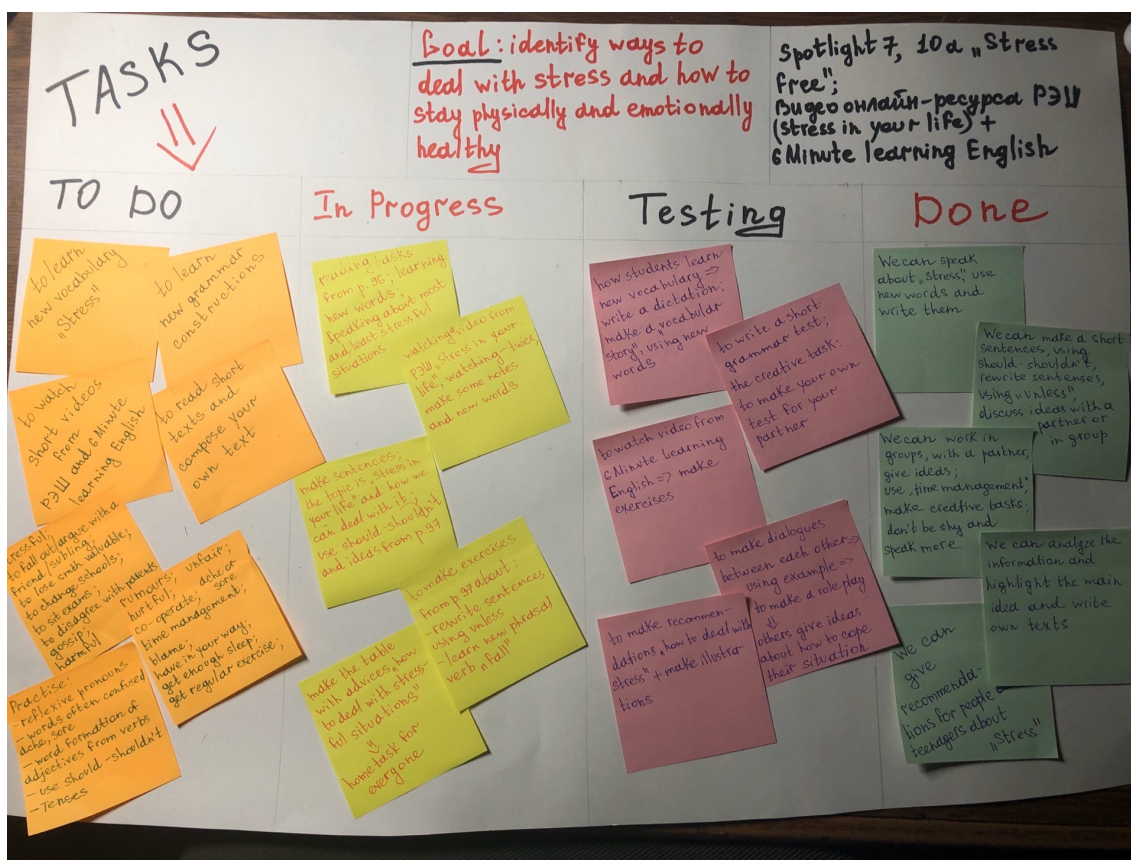 TASKS
Goal: identify ways to
deal with stress and how to
stay physically and emotionally
healthy
Spotlight 7, 10a „Stress
free";
Видео онлайн-ресурса РЭШ
(stress in your life) +
6 Minute learning English
TO DO
to learn
new vocabulary
"Stress"
to learn
new grammar
constructions
to watch
short videos
from
РЭШ and 6 Minute
learning English
to read short
texts and
compose your
own text
stressful,
to fall out/argue with a
friend/subling;
to lose smth valuable;
to change schools;
to sit exams;
to disagree with parents
gossip;
harmful
rumours; unfair;
co-operate, ache or
hurtful; sore
time management;
blame;
have in your way;
get enough sleep;
get regular exercise;
Practise:
- reflexive pronouns
- words often confused
ache, sore
- word formation of
adjectives from verbs
- use should-shouldn't
- Tenses
In Progress
reading: tasks
from p. 96; learning
new words;
speaking about most
and least stressful
situations
watching video from
РЭШ „stress in your
life", watching-twice,
make some notes
and new words
make sentences;
the topic is „stress in
your life" and how we
can deal with it;
use should-shouldn't
and, ideas from p.97
to make exercises
from p. 97 about:
- rewrite sentences,
using unless
- learn new phrasal
verb „fall"
make the table
with advices „how
to deal with stress-
ful situations"
home task for
everyone
Testing
how students learn
new vocabulary =>
write a dictation;
make a „vocabular
story", using new
words
to write a short
grammar test;
the creative task:
to make your own
test for your
partner
to watch video from
6 Minute Learning
English => make
exercises
to make dialogues
between each other =>
using example =>
to make a role play
others give ideas
about how to cope
their situation
to make recommen-
dations, how to deal with
stress" + make illustra-
tions
Done
We can speak
about „Stress", use
new words and
write them
We can make a short
sentences, using
should-shouldn't,
rewrite sentences,
using „unless",
discuss ideas with a
partner or
in group
We can work in
groups, with a partner,
give ideas;
use „time management";
make creative tasks;
don't be shy and
speak more
We can analyze the
information and
highlight the main
idea and write
own texts
We can
give
recommenda-
tions for people
teenagers about
„Stress"